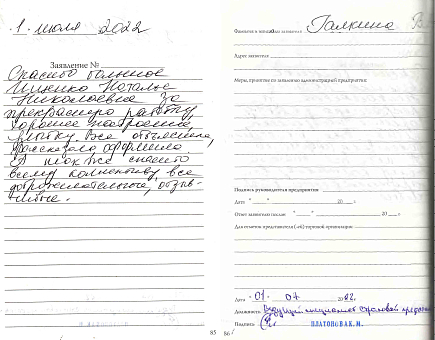 1 июля 2022
Заявление №
Спасибо большое
Наталье
Николаевне за
прекрасную работу,
хорошее настроение,
улыбку. Все объяснила,
рассказала, оформила.
А так же спасибо
всему коллективу, все
доброжелательные, отзыв-
чивые.
85
Фамилия и инициалы заявителя Галкина В
Адрес заявителя
Меры, принятые по заявлению администрацией предприятия:
Подпись руководителя предприятия
Дата " " 20 г.
Ответ заявителю послан " " 20 г.
Для отметок представителя (-ей) торговой организации:
Дата 01 07 2022.
Должность Ведущий специалист страховой
Подпись ПЛАТОНОВА К. М.
86